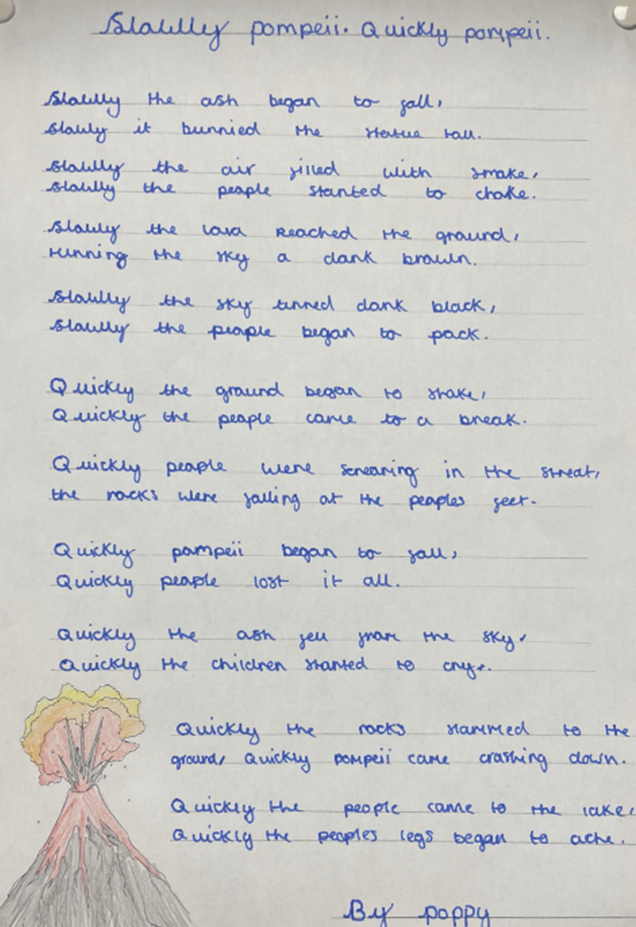 Slowly pompeii. Quickly pompeii.
Slowly the ash began to fall,
Slowly it burried the statue tall.
Slowly the air filled with smoke,
Slowly the people started to choke.
Slowly the lava reached the ground,
turning the sky a dark brown.
Slowly the sky turned dark black,
Slowly the people began to pack.
Quickly the ground began to shake,
Quickly the people came to a break.
Quickly people were screaming in the street,
the rocks were falling at the peoples feet.
Quickly pompeii began to fall,
Quickly people lost it all.
Quickly the ash fell from the sky,
Quickly the children started to cry.
Quickly the rocks slammed to the
ground, Quickly pompeii came crashing down.
Quickly the people came to the lake,
Quickly the peoples legs began to ache.
By poppy